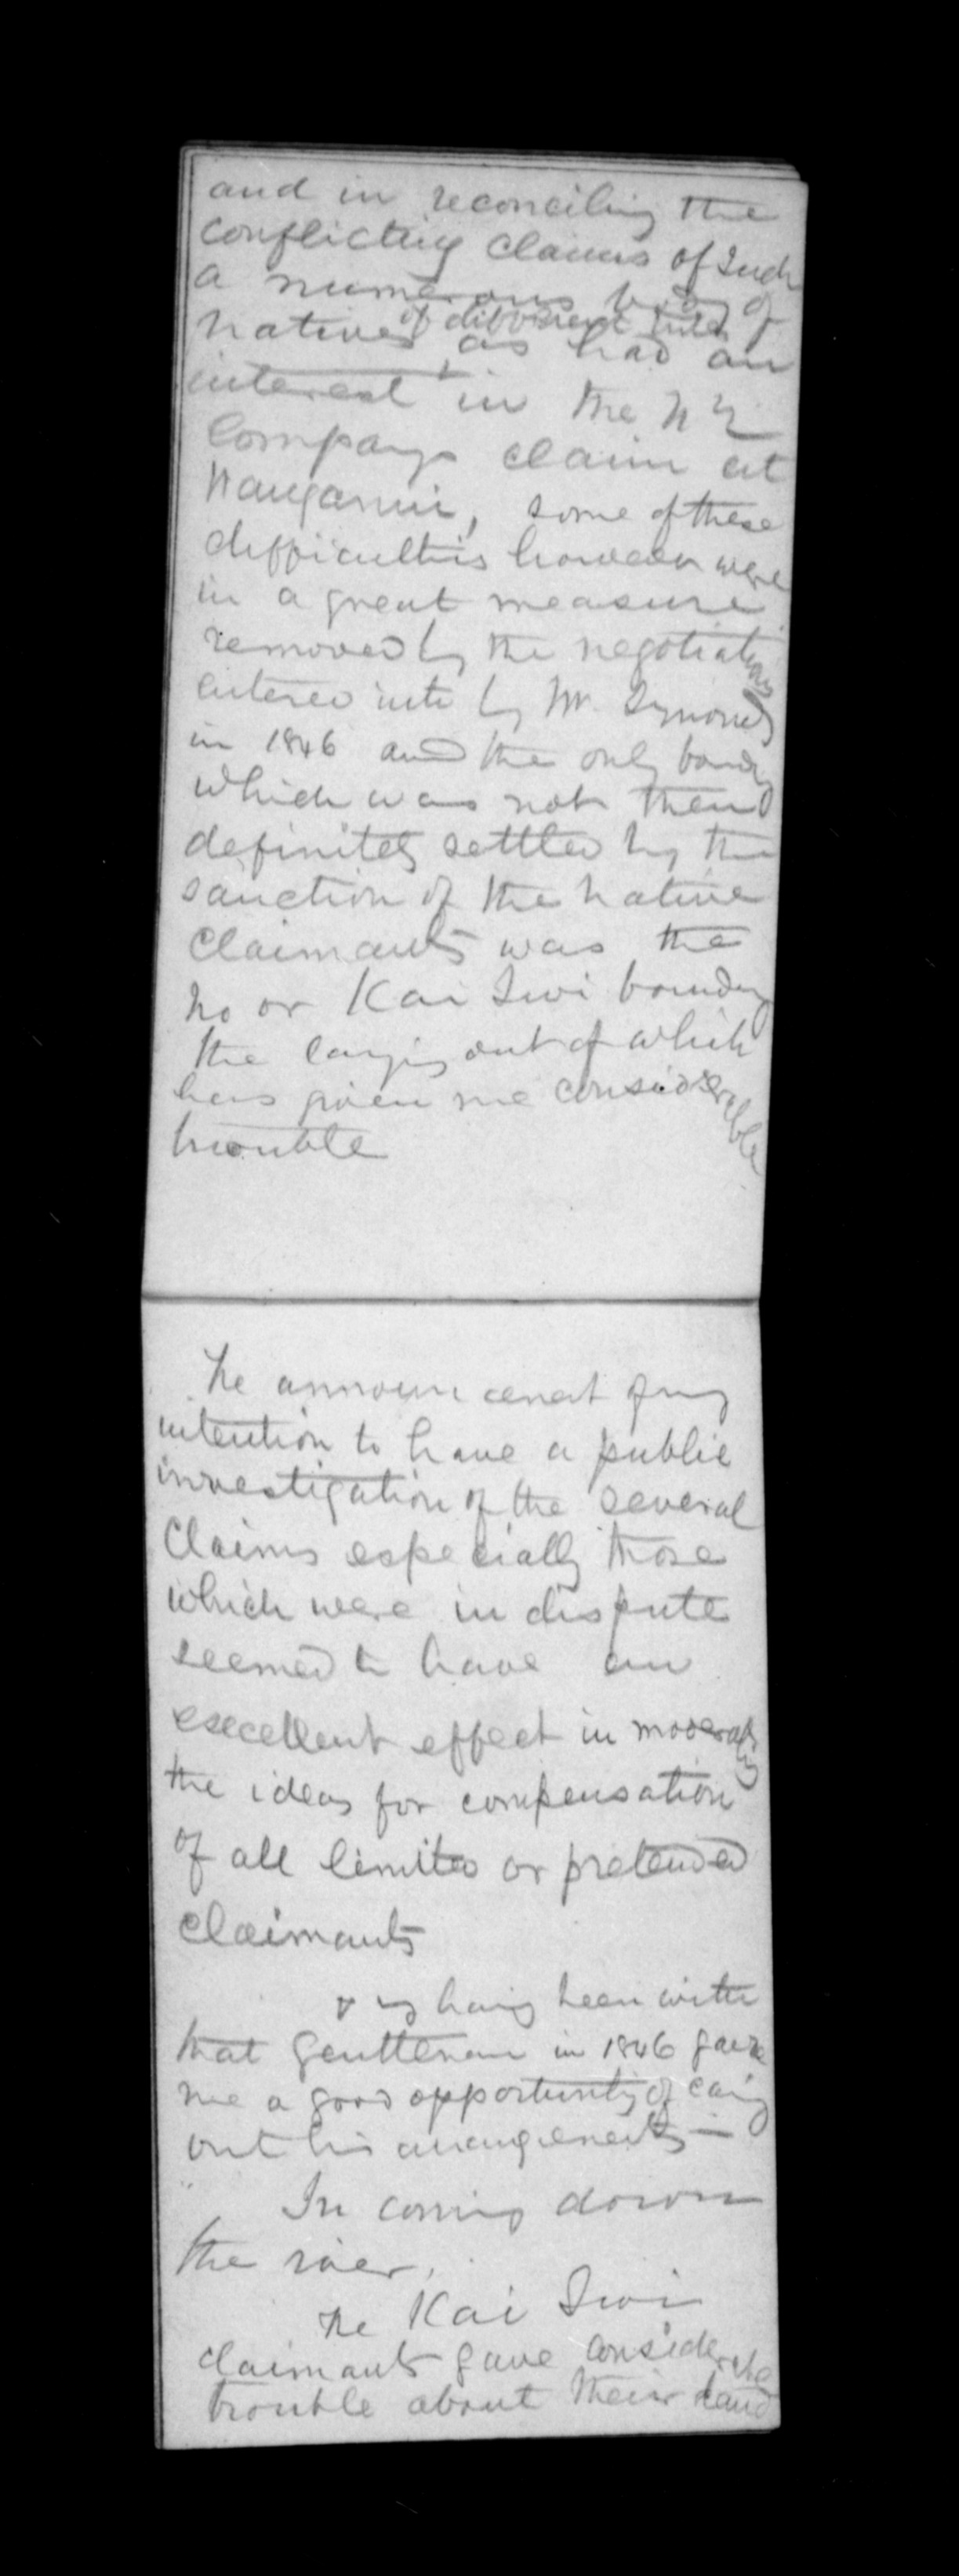 and in reconciling the
conflicting claims of such
a numerous body of
of different tribes
natives as had an
interest in the N Z
Companys claim at
Wanganui, some of these
difficulties however were
in a great measure
removed by the negotiations
entered into by Mr. Symonds
in 1846 and the only boundy
which was not then
definitely settled by the
sanction of the native
claimants was the
No or Kai Iwi boundy
the laying out of which
has given me considerable
trouble
The announcement of my
intention to have a public
investigation of the several
Claims especially those
which were in dispute
seemed to have an
excellent effect in moderating
the ideas for compensation
of all limited or pretended
claimants
& my having been with
that gentleman in 1846 gave
me a good opportunity of caing
out his arrangements —
In coming down
the river,
The Kai Iwi
claimants gave considerable
trouble about their land